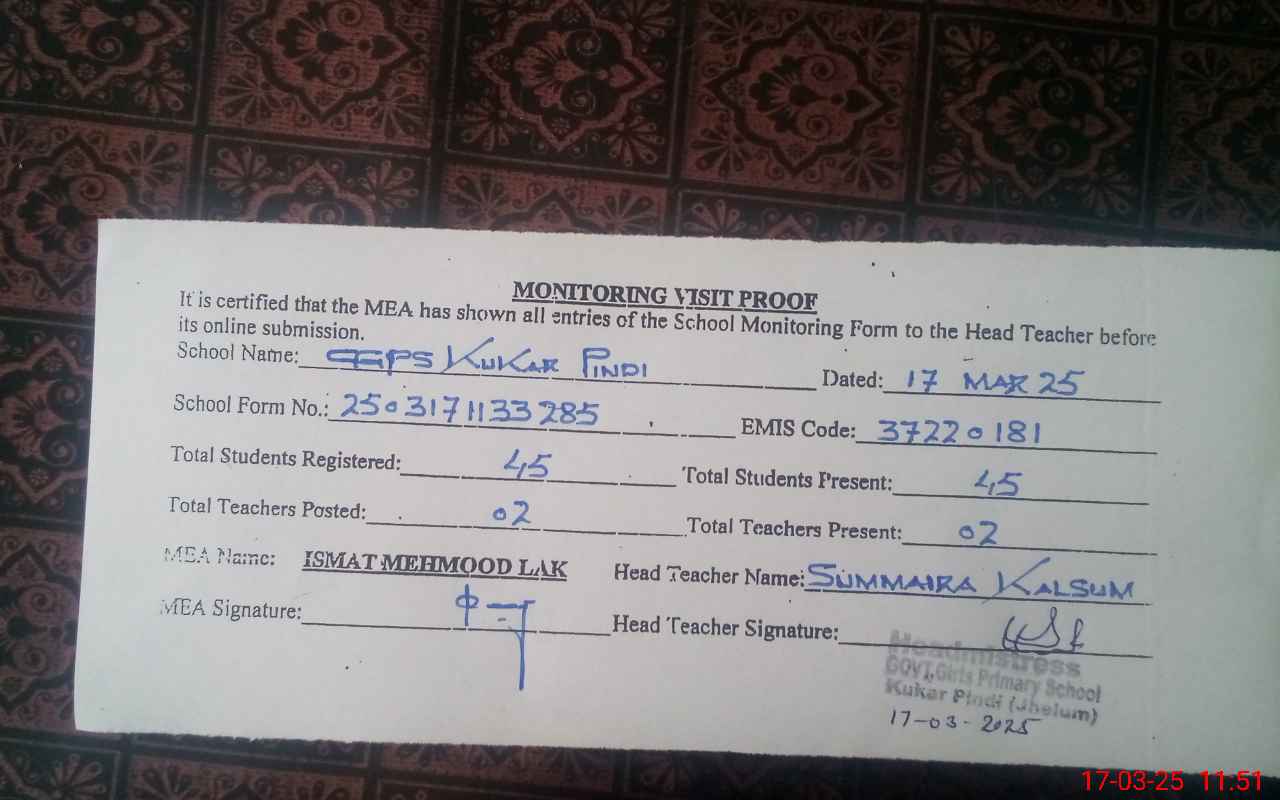 MONITORING VISIT PROOF
It is certified that the MEA has shown all entries of the School Monitoring Form to the Head Teacher before
its online submission.
School Name: GGPS KUKAR PINDI Dated: 17 MAR 25
School Form No.: 2503171133285 EMIS Code: 37220181
Total Students Registered: 45 Total Students Present: 45
Total Teachers Posted: 02 Total Teachers Present: 02
MEA Name: ISMAT MEHMOOD LAK Head Teacher Name: SUMMAIRA KALSUM
MEA Signature: Head Teacher Signature:
Headmistress
GOVT, Girls Primary School
Kukar Pindi (Jhelum)
17-03-2025
17-03-25 11:51